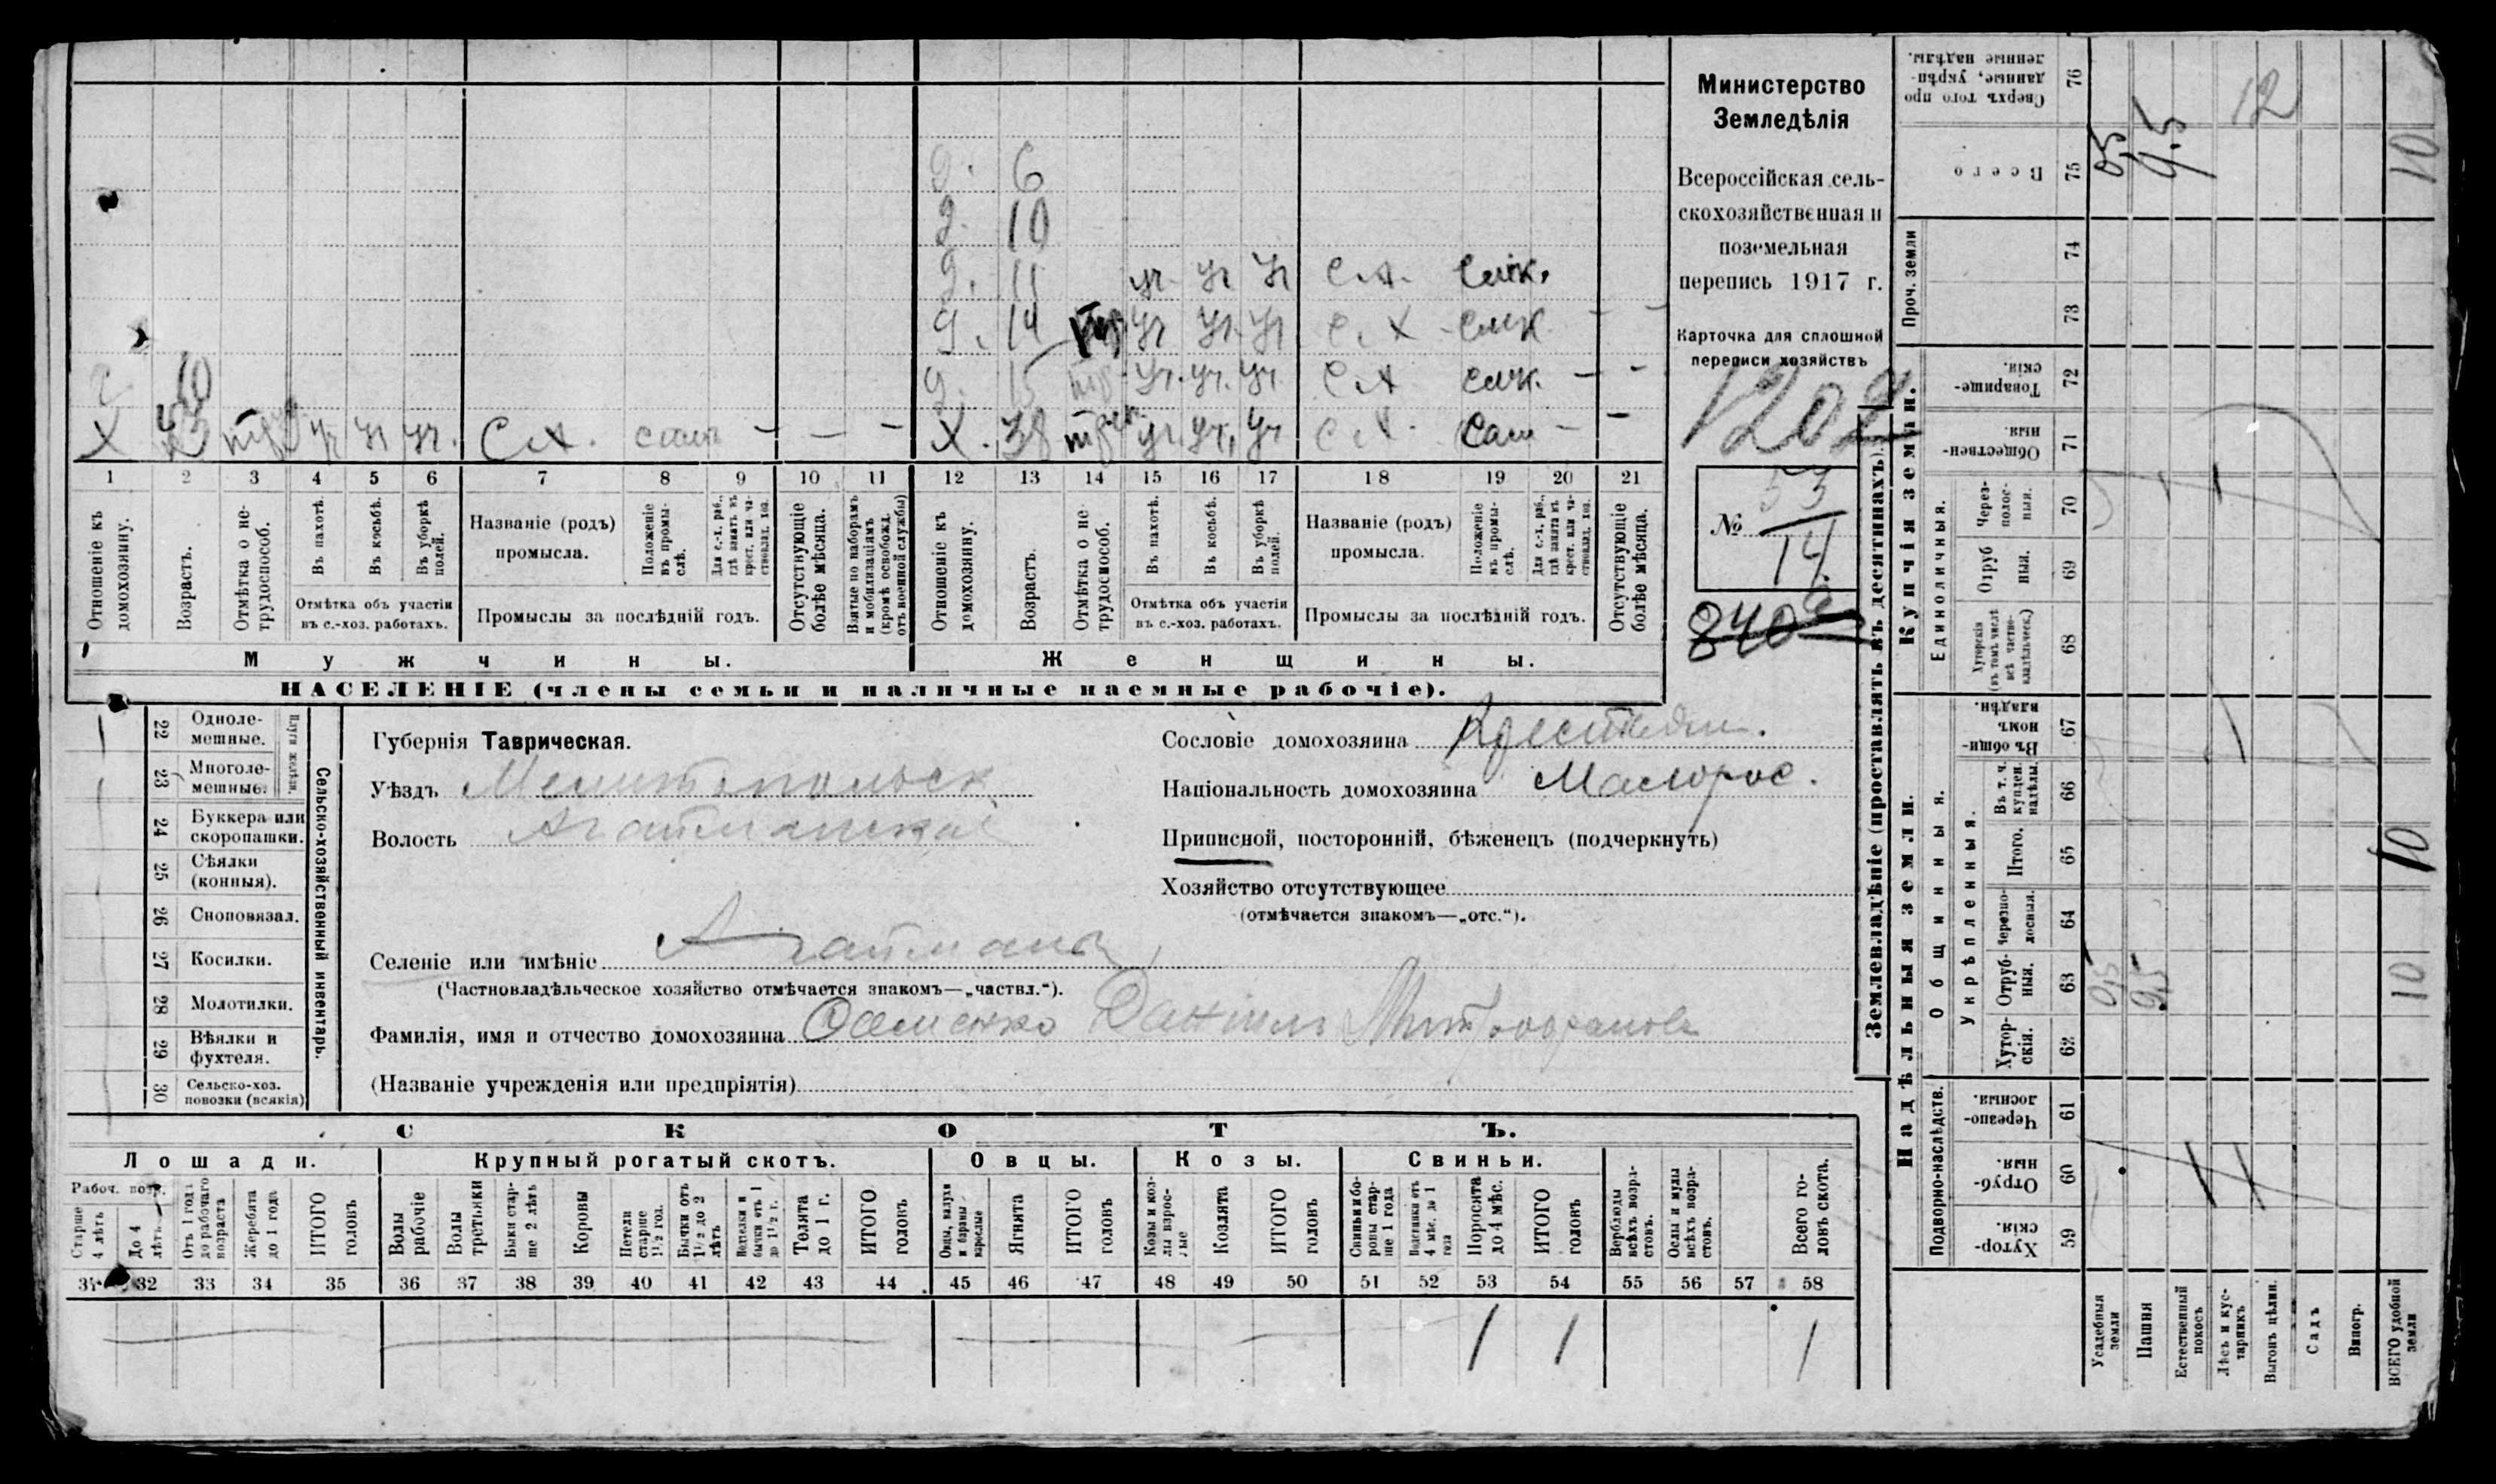 Министерство
Земледѣлія
Всероссійская сель-
скохозяйственная и
поземельная
перепись 1917 г.
Карточка для сплошной
переписи хозяйствъ
1202
№ 53
14
840
д. 6
д. 10
д. 11 уч. уч уч С.Х. смк.
д. 14 уч уч. уч С.Х смк – –
д. 15 уч. уч. уч. С.Х смк. – –
10
Х уч уч уч. С.Х. сам – – –
Х. 38 уч. уч. С.Х. Сам – –
1 2 3 4 5 6 7 8 9 10 11 12 13 14 15 16 17 18 19 20 21
Отношеніе къ домохозяину.
Возрастъ.
Отмѣтка о не-трудоспособ.
Въ пахотѣ.
Въ косьбѣ.
Въ уборкѣ полей.
Отмѣтка объ участіи
въ с.-хоз. работахъ.
Названіе (родъ)
промысла.
Положеніе въ промы-слѣ.
Для с.-х. раб., гдѣ занятъ въ крест. или ча-стновлад. хоз.
Промыслы за послѣдній годъ.
Отсутствующіе болѣе мѣсяца.
Взятые по наборамъ и мобилизаціямъ (кромѣ освобожд. отъ военной службы)
Отношеніе къ домохозяину.
Возрастъ.
Отмѣтка о не-трудоспособ.
Въ пахотѣ.
Въ косьбѣ.
Въ уборкѣ полей.
Отмѣтка объ участіи
въ с.-хоз. работахъ.
Названіе (родъ)
промысла.
Положеніе въ промы-слѣ.
Для с.-х. раб., гдѣ занята въ крест. или ча-стновлад. хоз.
Промыслы за послѣдній годъ.
Отсутствующіе болѣе мѣсяца.
Мужчины.
Женщины.
НАСЕЛЕНІЕ (члены семьи и наличные наемные рабочіе).
Сельско-хозяйственный инвентарь.
Плуги желѣзн.
22 Одноле-мешные.
23 Многоле-мешные.
24 Буккера или скоропашки.
25 Сѣялки (конныя).
26 Сноповязал.
27 Косилки.
28 Молотилки.
29 Вѣялки и фухтеля.
30 Сельско-хоз. повозки (всякія)
Губернія Таврическая.
Уѣздъ Мелитопольск
Волость Агайманская
Селеніе или имѣніе Агайманы
(Частновладѣльческое хозяйство отмѣчается знакомъ—„частвл.“).
Фамилія, имя и отчество домохозяина Даніилъ Митрофановъ
(Названіе учрежденія или предпріятія)
Сословіе домохозяина Крестьян.
Національность домохозяина Малорос.
Приписной, посторонній, бѣженецъ (подчеркнуть)
Хозяйство отсутствующее
(отмѣчается знакомъ—„отс.“).
СКОТЪ.
Лошади.
Крупный рогатый скотъ.
Овцы.
Козы.
Свиньи.
Рабоч. возр.
Старше 4 лѣтъ
До 4 лѣтъ.
Отъ 1 года до рабочаго возраста
Жеребята до 1 года
ИТОГО головъ
Волы рабочіе
Волы третьяки
Быки стар-ше 2 лѣтъ
Коровы
Нетели старше 1½ год.
Бычки отъ 1½ до 2 лѣтъ
Нетелки и бычки отъ 1 до 1½ г.
Телята до 1 г.
ИТОГО головъ
Овцы, валухи и бараны взрослые
Ягнята
ИТОГО головъ
Козы и коз-лы взрос-лые
Козлята
ИТОГО головъ
Свиньи и бо-ровы стар-ше 1 года
Подсвинки отъ 4 мѣс. до 1 года
Поросята до 4 мѣс.
ИТОГО головъ
Верблюды всѣхъ возра-стовъ.
Ослы и мулы всѣхъ возра-стовъ.
Всего го-ловъ скота.
31 32 33 34 35 36 37 38 39 40 41 42 43 44 45 46 47 48 49 50 51 52 53 54 55 56 57 58
1 1 1
Землевладѣніе (проставлять въ десятинахъ).
Надѣльныя земли.
Купчія земли.
Проч. земли
Подворно-наслѣдств.
Общинныя.
Укрѣпленныя.
Единоличныя.
76 Сверхъ того про-данные, укрѣп-ленные надѣлы.
75 Всего 0,5 9.5 12 10
74
73
72 Товарище-скія.
71 Обществен-ныя.
70 Через-полос-ныя.
69 Отруб ныя.
68 Хуторскія (въ томъ числѣ всѣ частно-владѣльческ.)
67 Въ общин-номъ владѣн.
66 Въ т. ч. куплен. надѣлы.
65 Итого. 10
64 Черезпо-лосныя.
63 Отруб-ныя. 0,5 9,5 10
62 Хутор-скія.
61 Черезпо-лосныя.
60 Отруб-ныя.
59 Хутор-скія.
Усадебныя земли
Пашня
Естественный покосъ
Лѣсъ и кус-тарникъ
Выгонъ цѣлин.
Садъ
Виногр.
ВСЕГО удобной земли